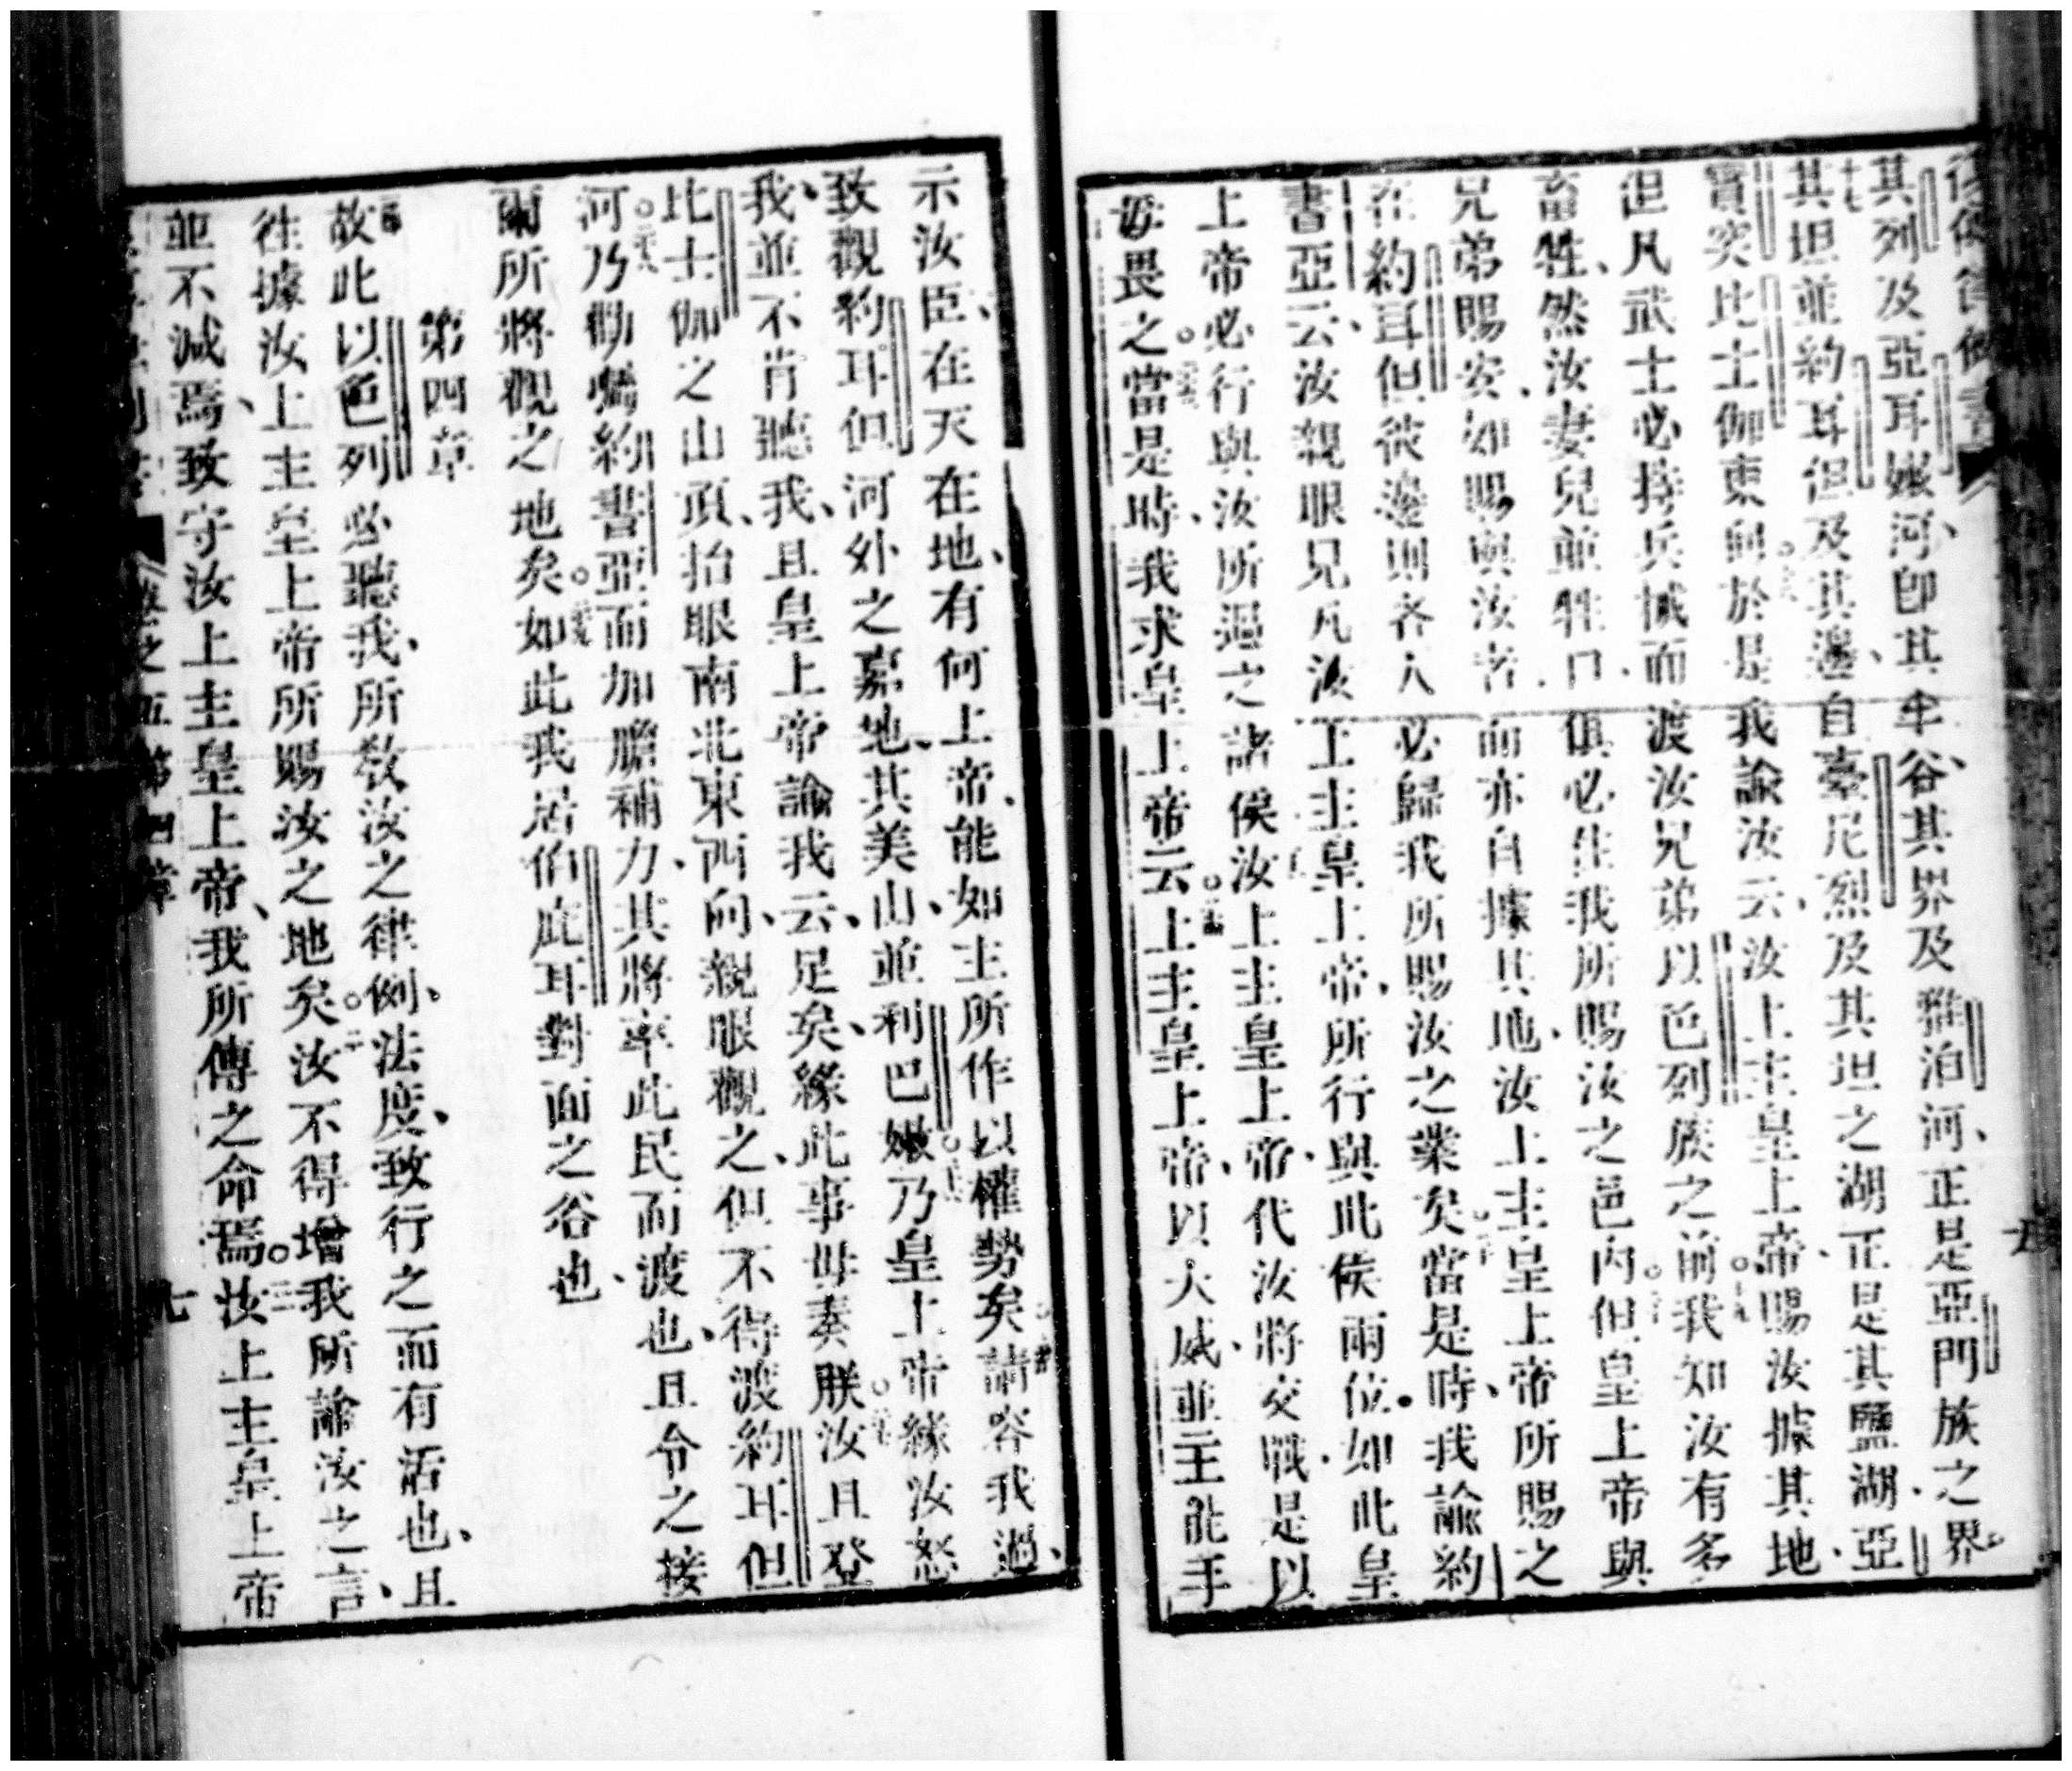 其列及亞耳嫩河、卽其半谷、其界及雅泊河、正是亞門族之界。
十七其坦並約耳但及其邊、自臺尼烈及其坦之湖正是其鹽湖、亞
實突比士伽東向。於是我諭汝云、汝上主皇上帝、賜汝據其地、
但凡武士必持兵械而渡汝兄弟以色列族之前。十九我知汝有多
畜牲、然汝妻兒並牲口、俱必住我所賜汝之邑內。但皇上帝與
兄弟賜安、如賜與汝者、而亦自據其地、汝上主皇上帝所賜之
在約耳但彼邊、則各人必歸我所賜汝之業矣。當是時、我諭約
書亞云、汝親眼見凡汝上主皇上帝、所行與此侯兩位、如此皇
上帝必行與汝所過之諸侯。汝上主皇上帝、代汝將交戰、是以
毋畏之。當是時、我求皇上帝云。上主皇上帝、以大威、並主能手
示汝臣、在天在地、有何上帝、能如主所作以權勢矣。請容我過、
致觀約耳但河外之嘉地、其美山、並利巴嫩。乃皇上帝緣汝怒
我、並不肯聽我、且皇上帝諭我云、足矣、緣此事毋奏朕。汝且登
比士伽之山頂、抬眼南北東西向、親眼觀之、但不得渡約耳但
河。二十八乃勸囑約書亞、而加膽補力、其將率此民而渡也、且令之接
爾所將觀之地矣。如此我居伯庇耳對面之谷也、
第四章
故此以色列必聽我、所敎汝之律例、法度、致行之而有活也、且
往據汝上主皇上帝所賜汝之地矣。二汝不得增我所諭汝之言、
並不減焉、致守汝上主皇上帝、我所傳之命焉。三汝上主皇上帝
卷之五第四章 七